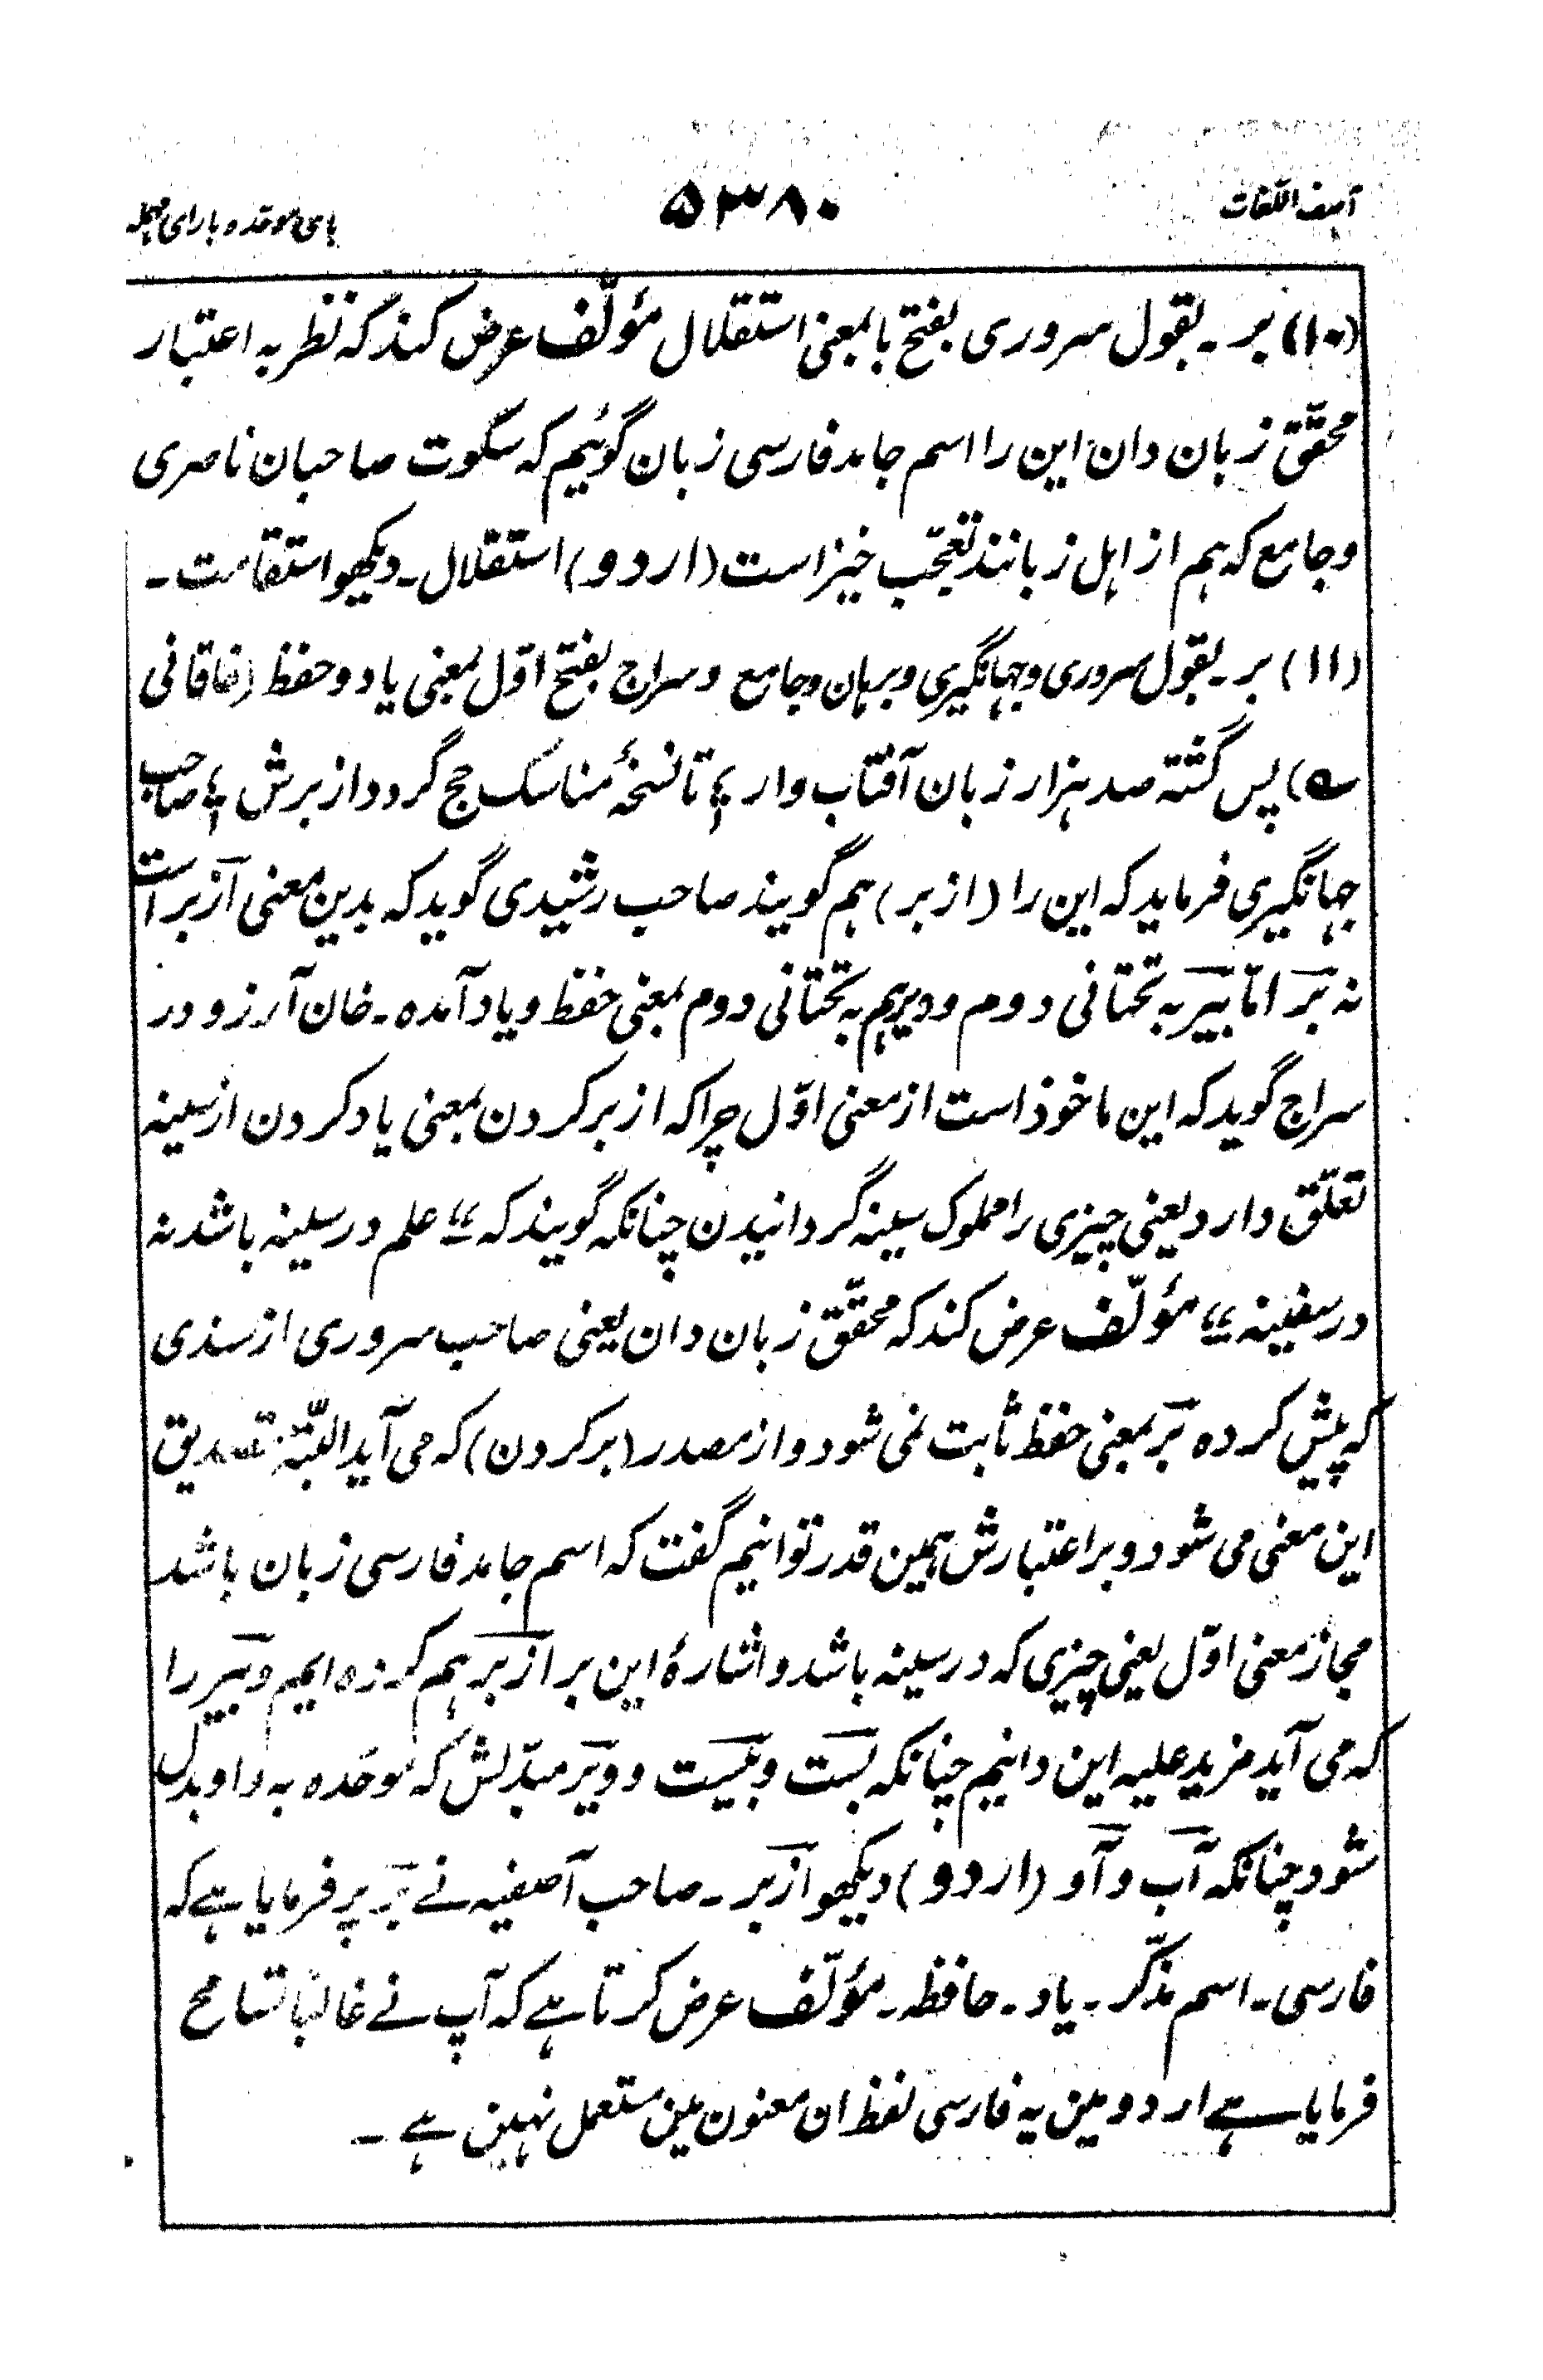 آصف اللّغات
۵۳۸۰
بای موحّده با رای مهمله
(۱۰) بر۔ بقول سروری بفتح با بمعنی استقلال مؤلّف عرض کند که نظر به اعتبار
محقّق زبان دان این را اسم جامد فارسی زبان گوئیم که سکوت صاحبان ناصری
و جامع که هم از اهل زبانند تعجّب خیز است (اردو) استقلال۔ دیکھو استقامت۔
(۱۱) بر۔ بقول سروری و جهانگیری و برهان و جامع و سراج بفتح اوّل بمعنی یاد و حفظ (خاقانی
ے) پس گشته صد هزار زبان آفتاب وار ؛ تا نسخۀ مناسک حج گردد از برش ؛ صاحب
جهانگیری فرماید که این را (از بر) هم گویند صاحب رشیدی گوید که بدین معنی از بر است
نه بر امّا بیر به تحتانی دوم و ویر هم به تحتانی دوم بمعنی حفظ و یاد آمده۔ خان آرزو در
سراج گوید که این ماخوذ است از معنی اوّل چرا که از بر کردن بمعنی یاد کردن از سینه
تعلّق دارد یعنی چیزی را مملوک سینه گردانیدن چنانکه گویند که “علم در سینه باشد نه
در سفینه“ مؤلّف عرض کند که محقّق زبان دان یعنی صاحب سروری از سندی
که پیش کرده بر بمعنی حفظ ثابت نمی شود و از مصدر (بر کردن) که می آید البتّه تصدیق
این معنی می شود و بر اعتبارش همین قدر توانیم گفت که اسم جامد فارسی زبان باشد
مجاز معنی اوّل یعنی چیزی که در سینه باشد و اشارۀ این بر از بر هم کرده ایم و بیر را
که می آید مزید علیه این دانیم چنانکه بست و بیست و ویر مبدّلش که موحّده به واو بدل
شود چنانکه آب و آو (اردو) دیکھو از بر۔ صاحب آصفیه نے بر پر فرمایا ہے که
فارسی۔ اسم مذکّر۔ یاد۔ حافظه۔ مؤلّف عرض کرتا ہے که آپ نے غالباً تسامح
فرمایا ہے اردو مین یه فارسی لفظ ان معنون مین مستعمل نہین ہے۔